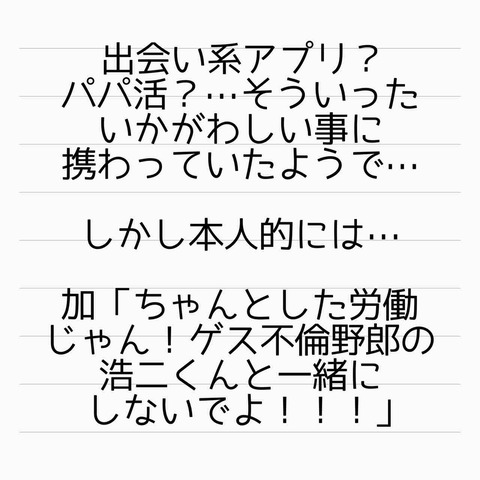 出会い系アプリ？
パパ活？…そういった
いかがわしい事に
携わっていたようで…
しかし本人的には…
加「ちゃんとした労働
じゃん！ゲス不倫野郎の
浩二くんと一緒に
しないでよ！！！」